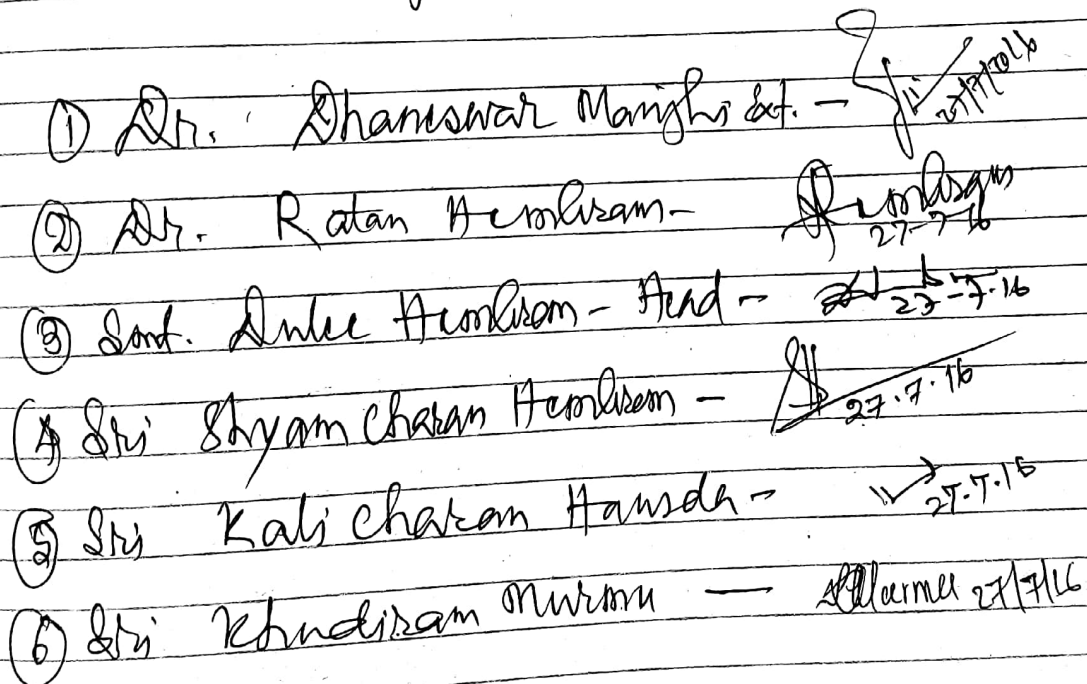 ① Dr. Dhaneswar Manjhi Ext. - 27/7/2016
② Dr. Ratan Hembram - Hembram 27-7-16
③ Smt. Dulee Hembrom - Head - 27-7-16
④ Sri Shyam Charan Hembrom - 27.7.16
⑤ Sri Kali Charan Hansda - 27.7.16
⑥ Sri Khudiram Murmu — Murmu 27/7/16